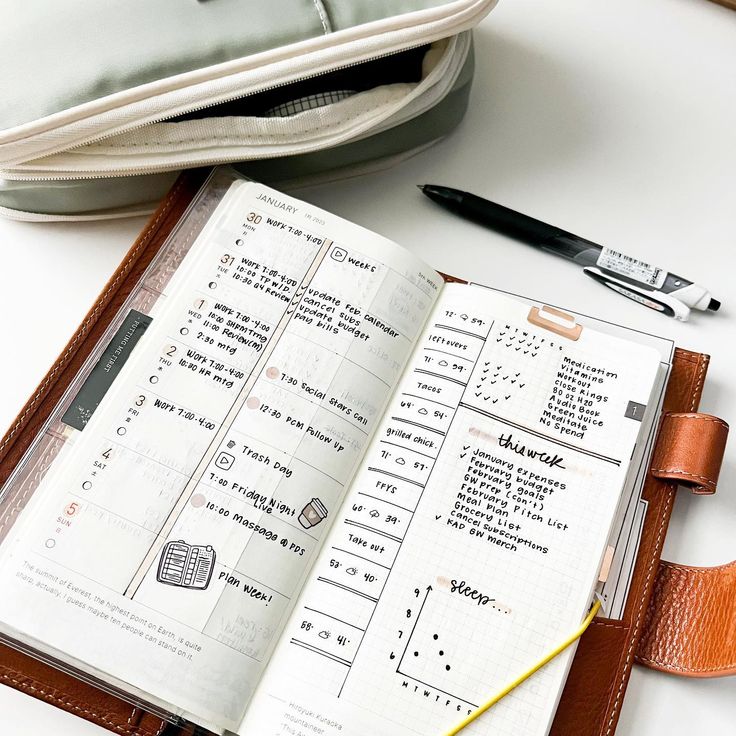 JANUARY 1月 2023
5TH WEEK
30
MON
月
WORK 7:00-4:00
weeks
31
TUE
火
WORK 7:00-4:00
10:30 Q4 Review
update Feb. calendar
cancel subs
update budget
pay bills
1
WED
水
WORK 7:00-4:00
2:30 mtg
7:30 Social Stars call
2
THU
木
WORK 7:00-4:00
10:00 HR mtg
12:30 PCM Follow up
3
FRI
金
WORK 7:00-4:00
Trash Day
7:00 Friday Night
Live
4
SAT
土
10:00 Massage @ PDS
5
SUN
日
Plan Week!
The summit of Everest, the highest point on Earth, is quite
sharp, actually. I guess maybe ten people can stand on it.
PUTTING ME FIRST
72° 59°
leftovers
71° 53°
Tacos
64° 54°
grilled chick.
63° 57°
FFYS
60° 39°
Take out
53° 40°
58° 41°
M T W T F S S
Medication
Vitamins
Workout
Close Rings
80 oz H2O
Audio Book
Green Juice
meditate
No Spend
1
this week
January expenses
February budget
February goals
GW prep (con't)
February Pitch List
Meal plan
Grocery List
cancel subscriptions
KAD GW merch
sleep...
9
8
7
6
M T W T F S S
Hiroyuki Kuraoka
mountaineer